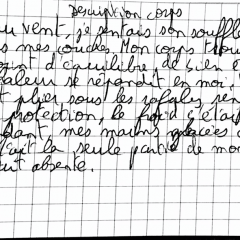 Description corps
au vent, je sentais son souffle
mes couches. Mon corps trou
point d'équilibre, de bien e
chaleur se répondit en moi.
t plier sous les rafales, ren
protection, le froid s'étai
dant, mes mains glacées
ait la seule partie de mo
ut absente.